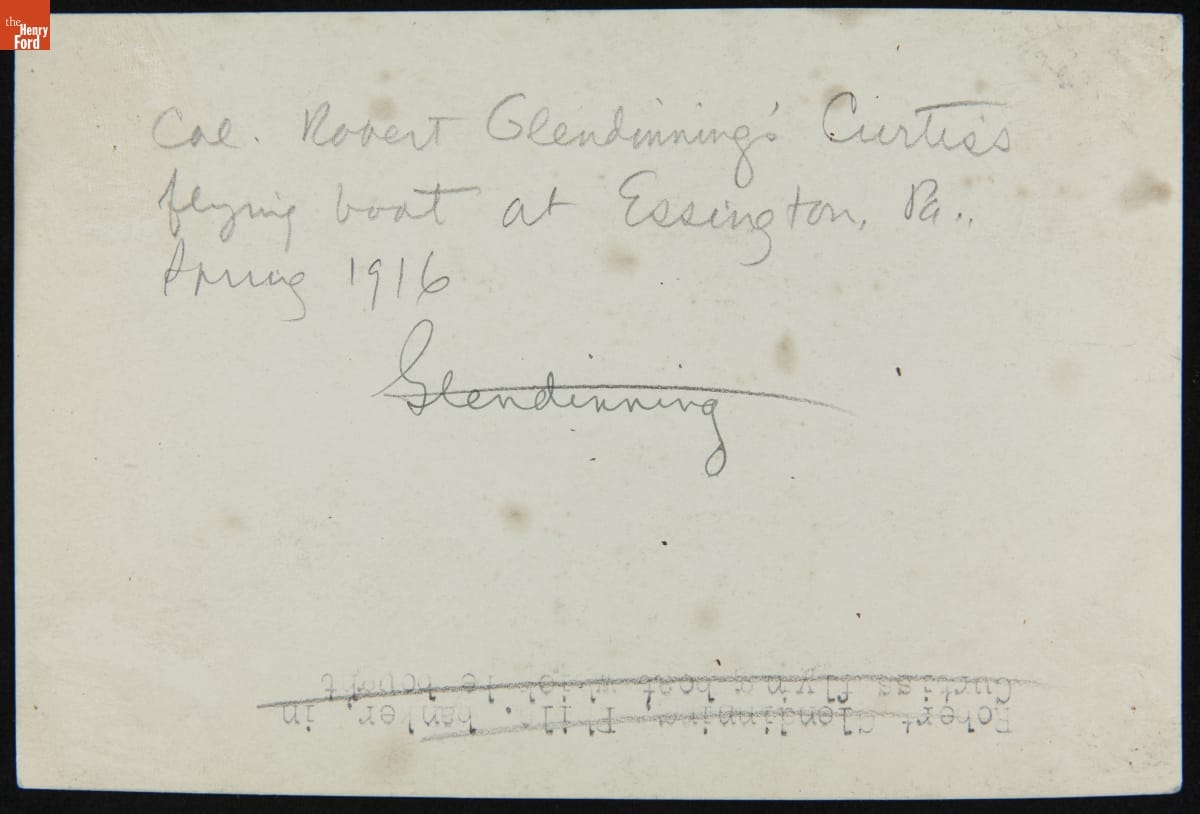 the Henry Ford
Col. Robert Glendinning's Curtiss
flying boat at Essington, Pa.,
Spring 1916
Glendinning
Robert Glendinning Phil. banker, in
Curtiss flying boat which he bought